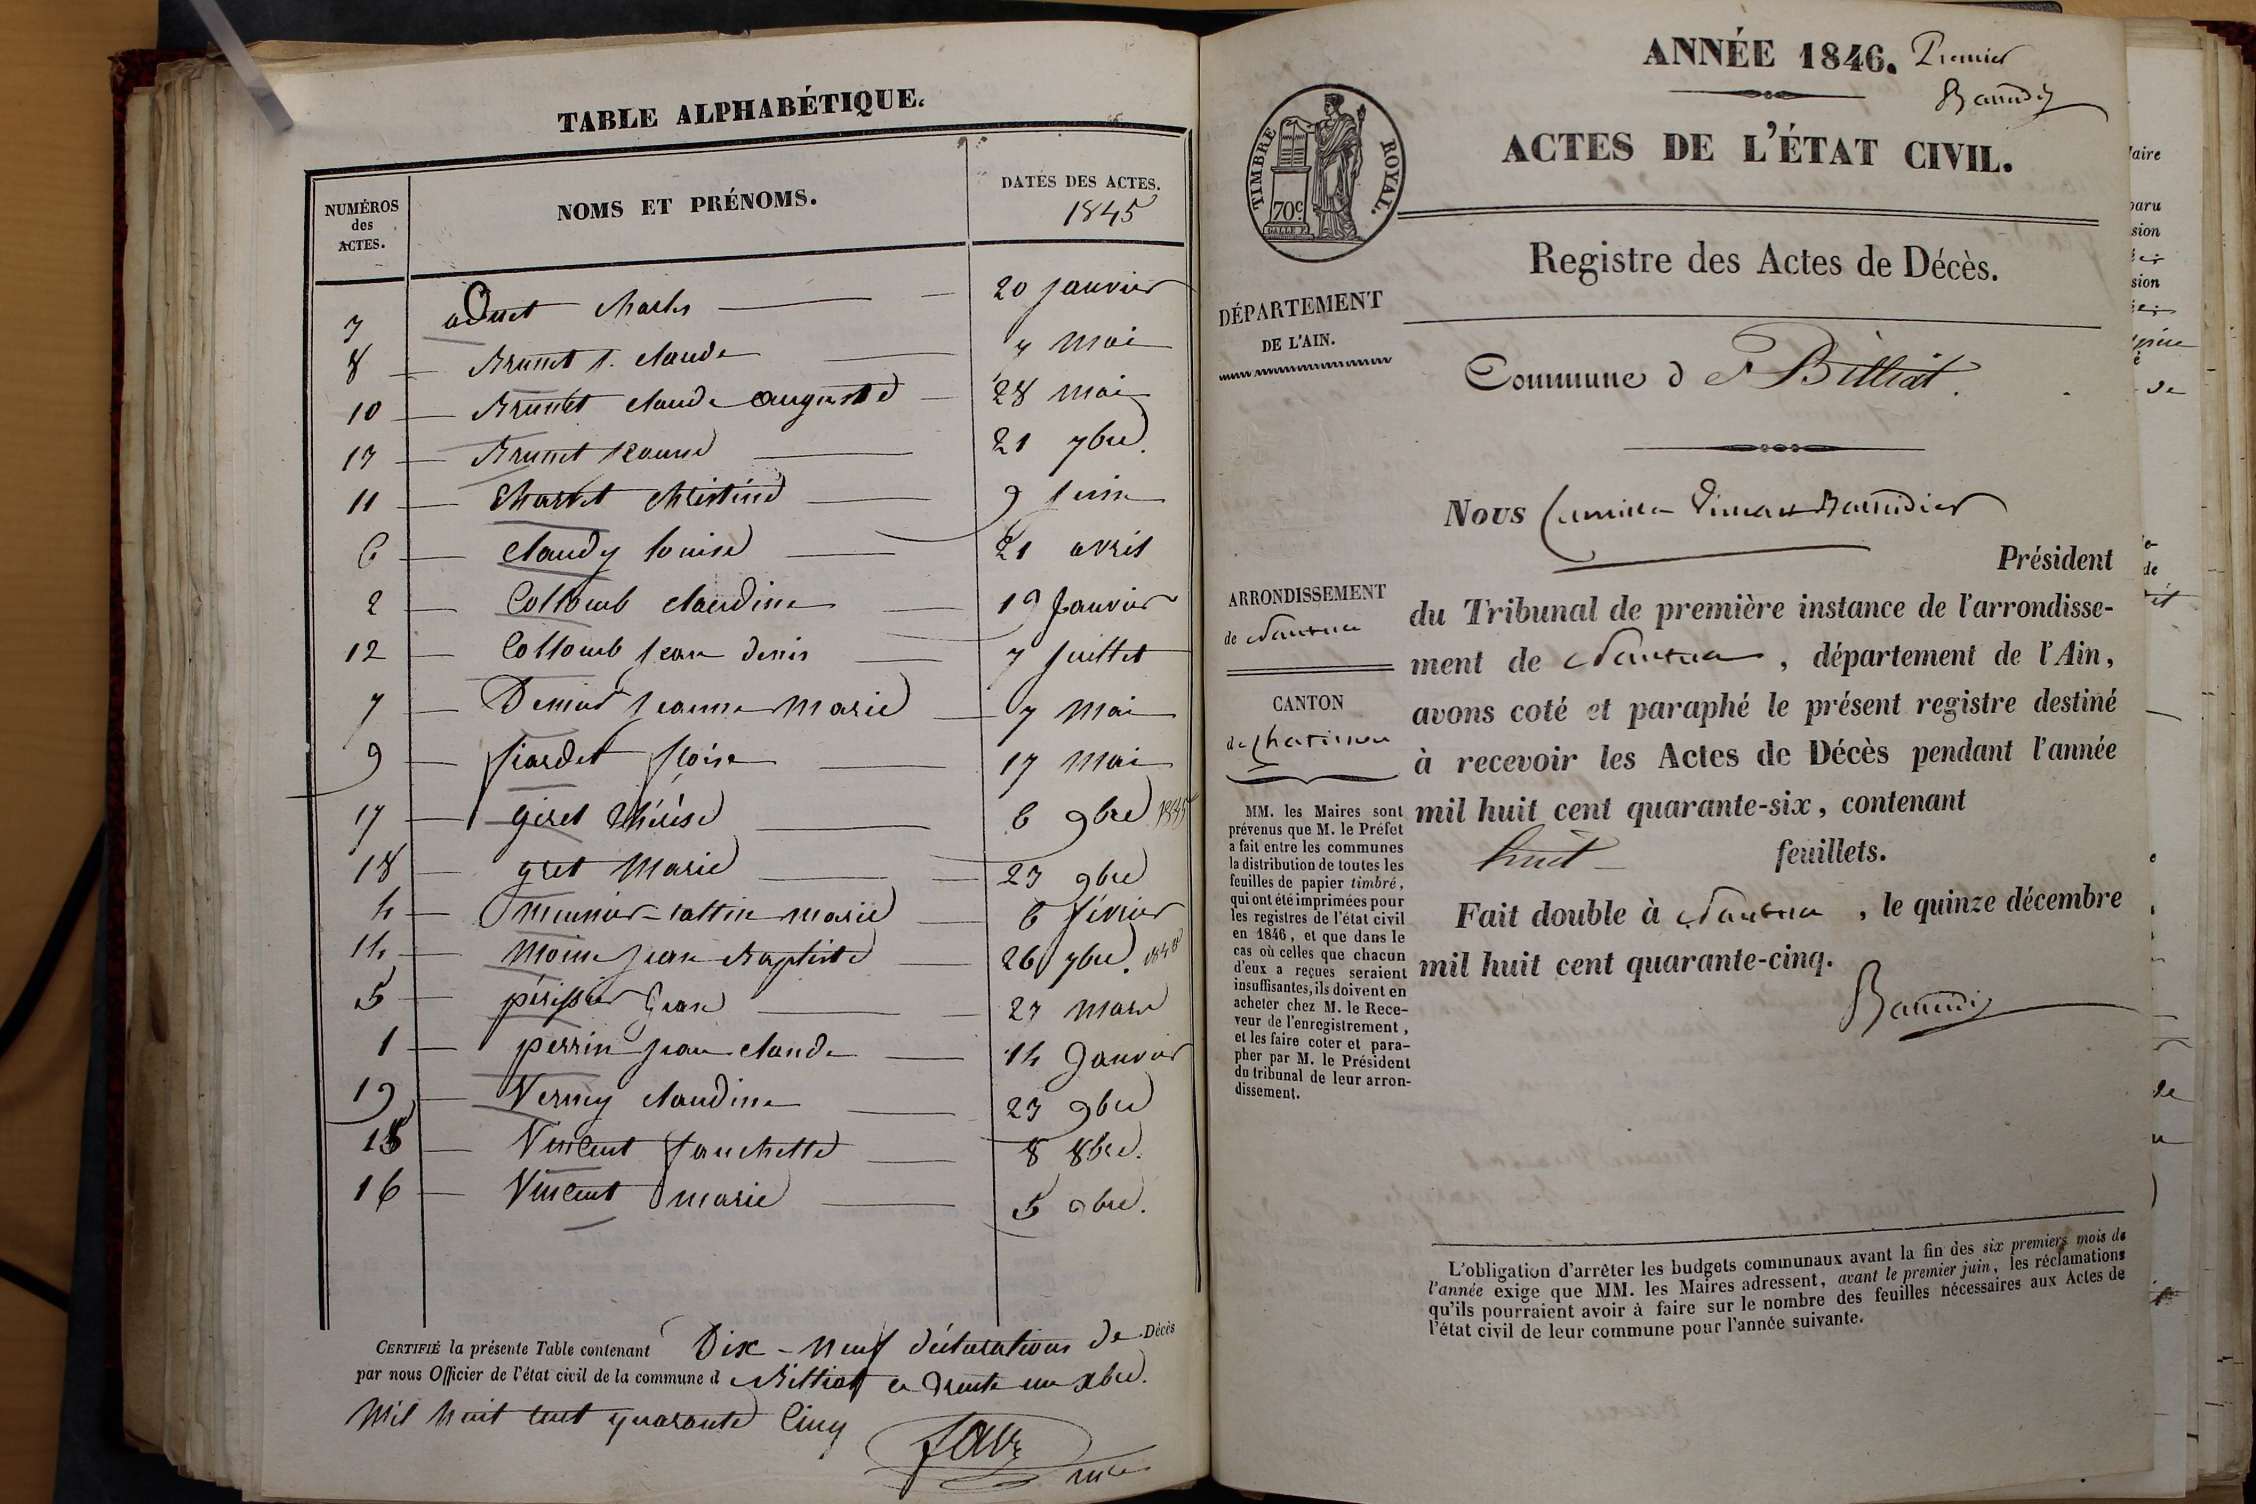 TABLE ALPHABÉTIQUE.
NUMÉROS des ACTES.
NOMS ET PRÉNOMS.
DATES DES ACTES.
1845
20 janvier
8 Brunet j. claude 7 mai
10 Brunet claude auguste 28 mai
13 Brunet jeanne 21 7bre.
11 Charvet christine 9 juin
6 Claudy louise 21 avril
2 Collomb claudine 19 janvier
12 Collomb jean denis 7 juillet
7 jeanne marie 7 mai
9 17 mai
17 Gret thérèse 6 9bre 1845
18 gret marie 23 9bre
4 marie 6 février
14 moine jean Baptiste 26 7bre.
5 périssier jean 27 mars
1 perrin jean claude 14 janvier
19 Verney claudine 23 9bre
15 Vincent fanchette 8 8bre.
16 Vincent marie 5 9bre.
CERTIFIÉ la présente Table contenant Dix-neuf déclarations de Décès
par nous Officier de l'état civil de la commune d Billiat ce trente un xbre.
Mil huit cent quarante Cinq
ANNÉE 1846. Premier
ACTES DE L'ÉTAT CIVIL.
TIMBRE ROYAL.
70c
Registre des Actes de Décès.
DÉPARTEMENT
DE L'AIN.
Commune de Billiat.
Nous
Président
ARRONDISSEMENT
de Nantua
CANTON
de Chatillon
du Tribunal de première instance de l'arrondisse-
ment de Nantua, département de l'Ain,
avons coté et paraphé le présent registre destiné
à recevoir les Actes de Décès pendant l'année
mil huit cent quarante-six, contenant
huit feuillets.
Fait double à Nantua, le quinze décembre
mil huit cent quarante-cinq.
MM. les Maires sont
prévenus que M. le Préfet
a fait entre les communes
la distribution de toutes les
feuilles de papier timbré,
qui ont été imprimées pour
les registres de l'état civil
en 1846, et que dans le
cas où celles que chacun
d'eux a reçues seraient
insuffisantes, ils doivent en
acheter chez M. le Rece-
veur de l'enregistrement,
et les faire coter et para-
pher par M. le Président
du tribunal de leur arron-
dissement.
L'obligation d'arrêter les budgets communaux avant la fin des six premiers mois de
l'année exige que MM. les Maires adressent, avant le premier juin, les réclamations
qu'ils pourraient avoir à faire sur le nombre des feuilles nécessaires aux Actes de
l'état civil de leur commune pour l'année suivante.